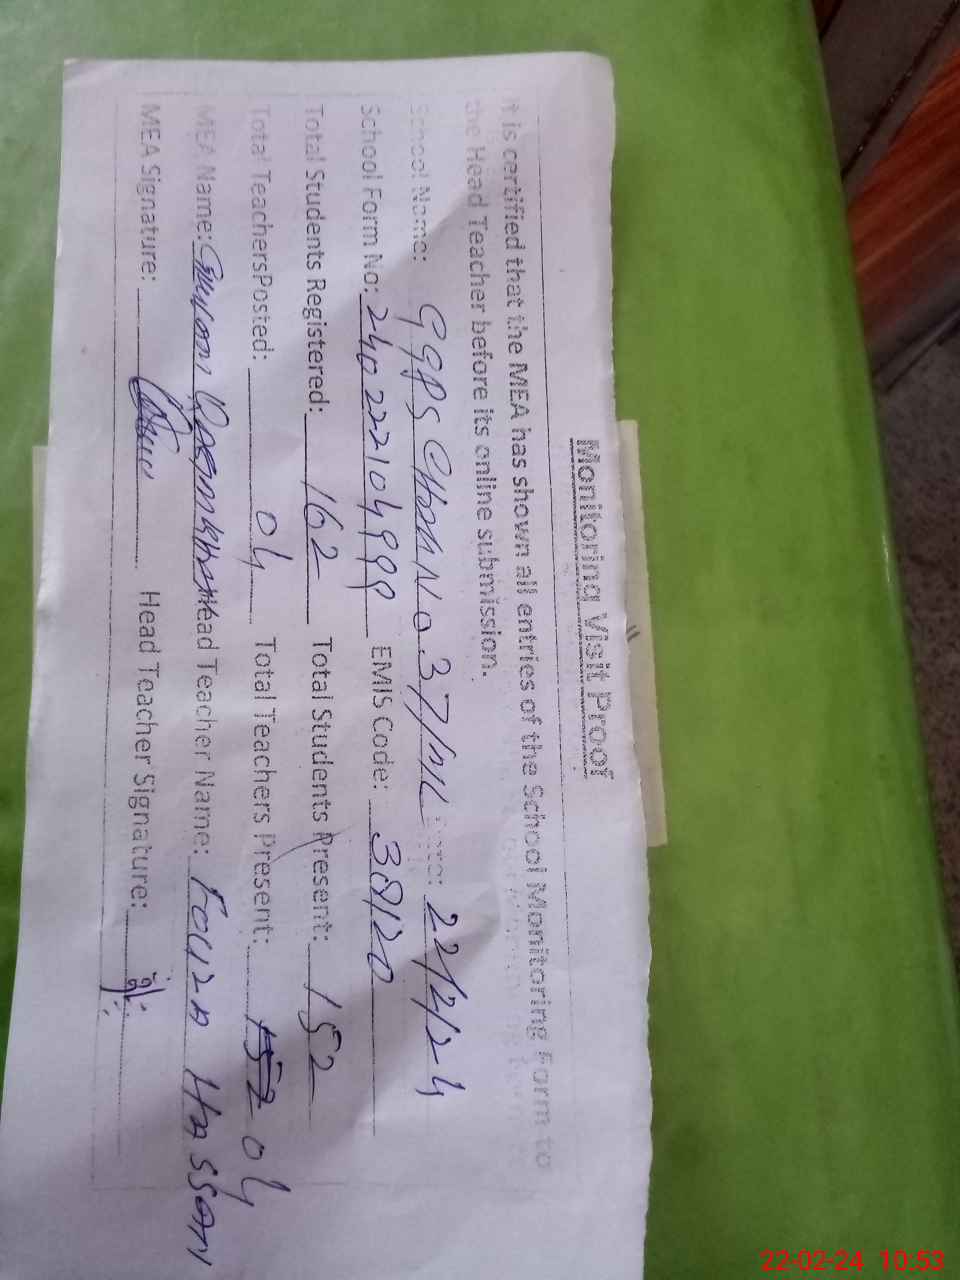 Monitoring Visit Proof
It is certified that the MEA has shown all entries of the School Monitoring Form to
the Head Teacher before its online submission.
School Name: GGPS CHAK No. 37/ML Date: 22/2/24
School Form No: EMIS Code: 38120
Total Students Registered: 162 Total Students Present: 152
Total TeachersPosted: 04 Total Teachers Present: 152 04
MEA Name: Head Teacher Name: Fouzia Hassan
MEA Signature: Head Teacher Signature:
22-02-24 10:53